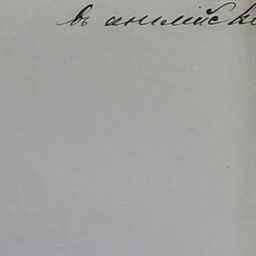 въ англійск